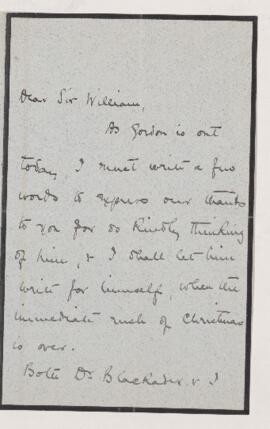 Dear Sir William,
As Gordon is out
today, I must write a few
words to express our thanks
to you for so kindly thinking
of him, & I shall let him
write for himself, when the
immediate rush of Christmas
is over.
Both Dr Blackader & I